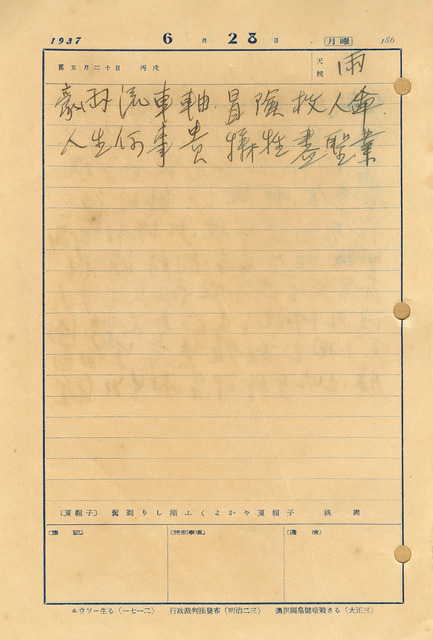 1937 6月28日 月曜 186
舊五月二十日 丙戌 天候 雨
豪雨流車軸 冒險救人命
人生何事貴 犠牲盡聖業
〔夏帽子〕 鬢剃りし頬ふくよかや夏帽子
〔特別事項〕
ルウソー生る(一七一二) 行政裁判法發布(明治二三) (大正三)